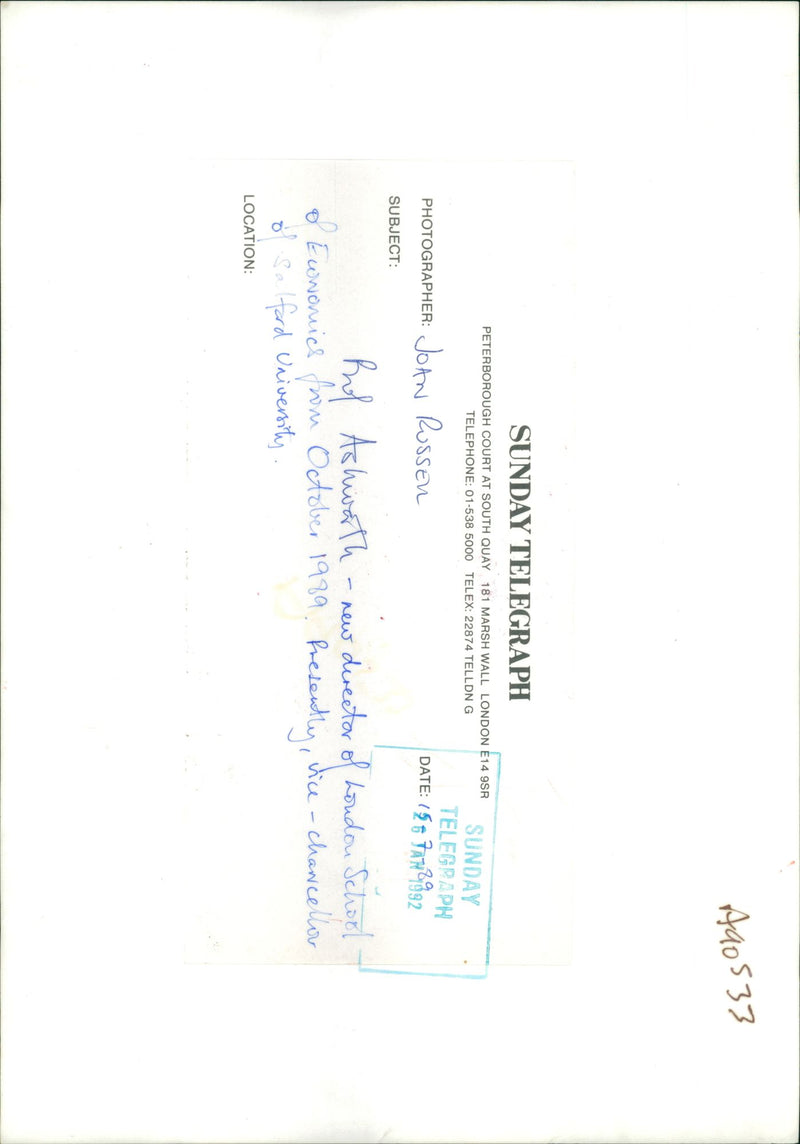 SUNDAY TELEGRAPH
PETERBOROUGH COURT AT SOUTH QUAY 181 MARSH WALL LONDON E14 9SR
TELEPHONE: 01-538 5000 TELEX: 22874 TELLDN G
PHOTOGRAPHER: JOAN RUSSELL
DATE: 15-7-89
SUNDAY
TELEGRAPH
26 JAN 1992
SUBJECT:
Prof Ashworth - new director of London School
of Economics from October 1989. Presently, vice-chancellor
of Salford University.
LOCATION:
A90533